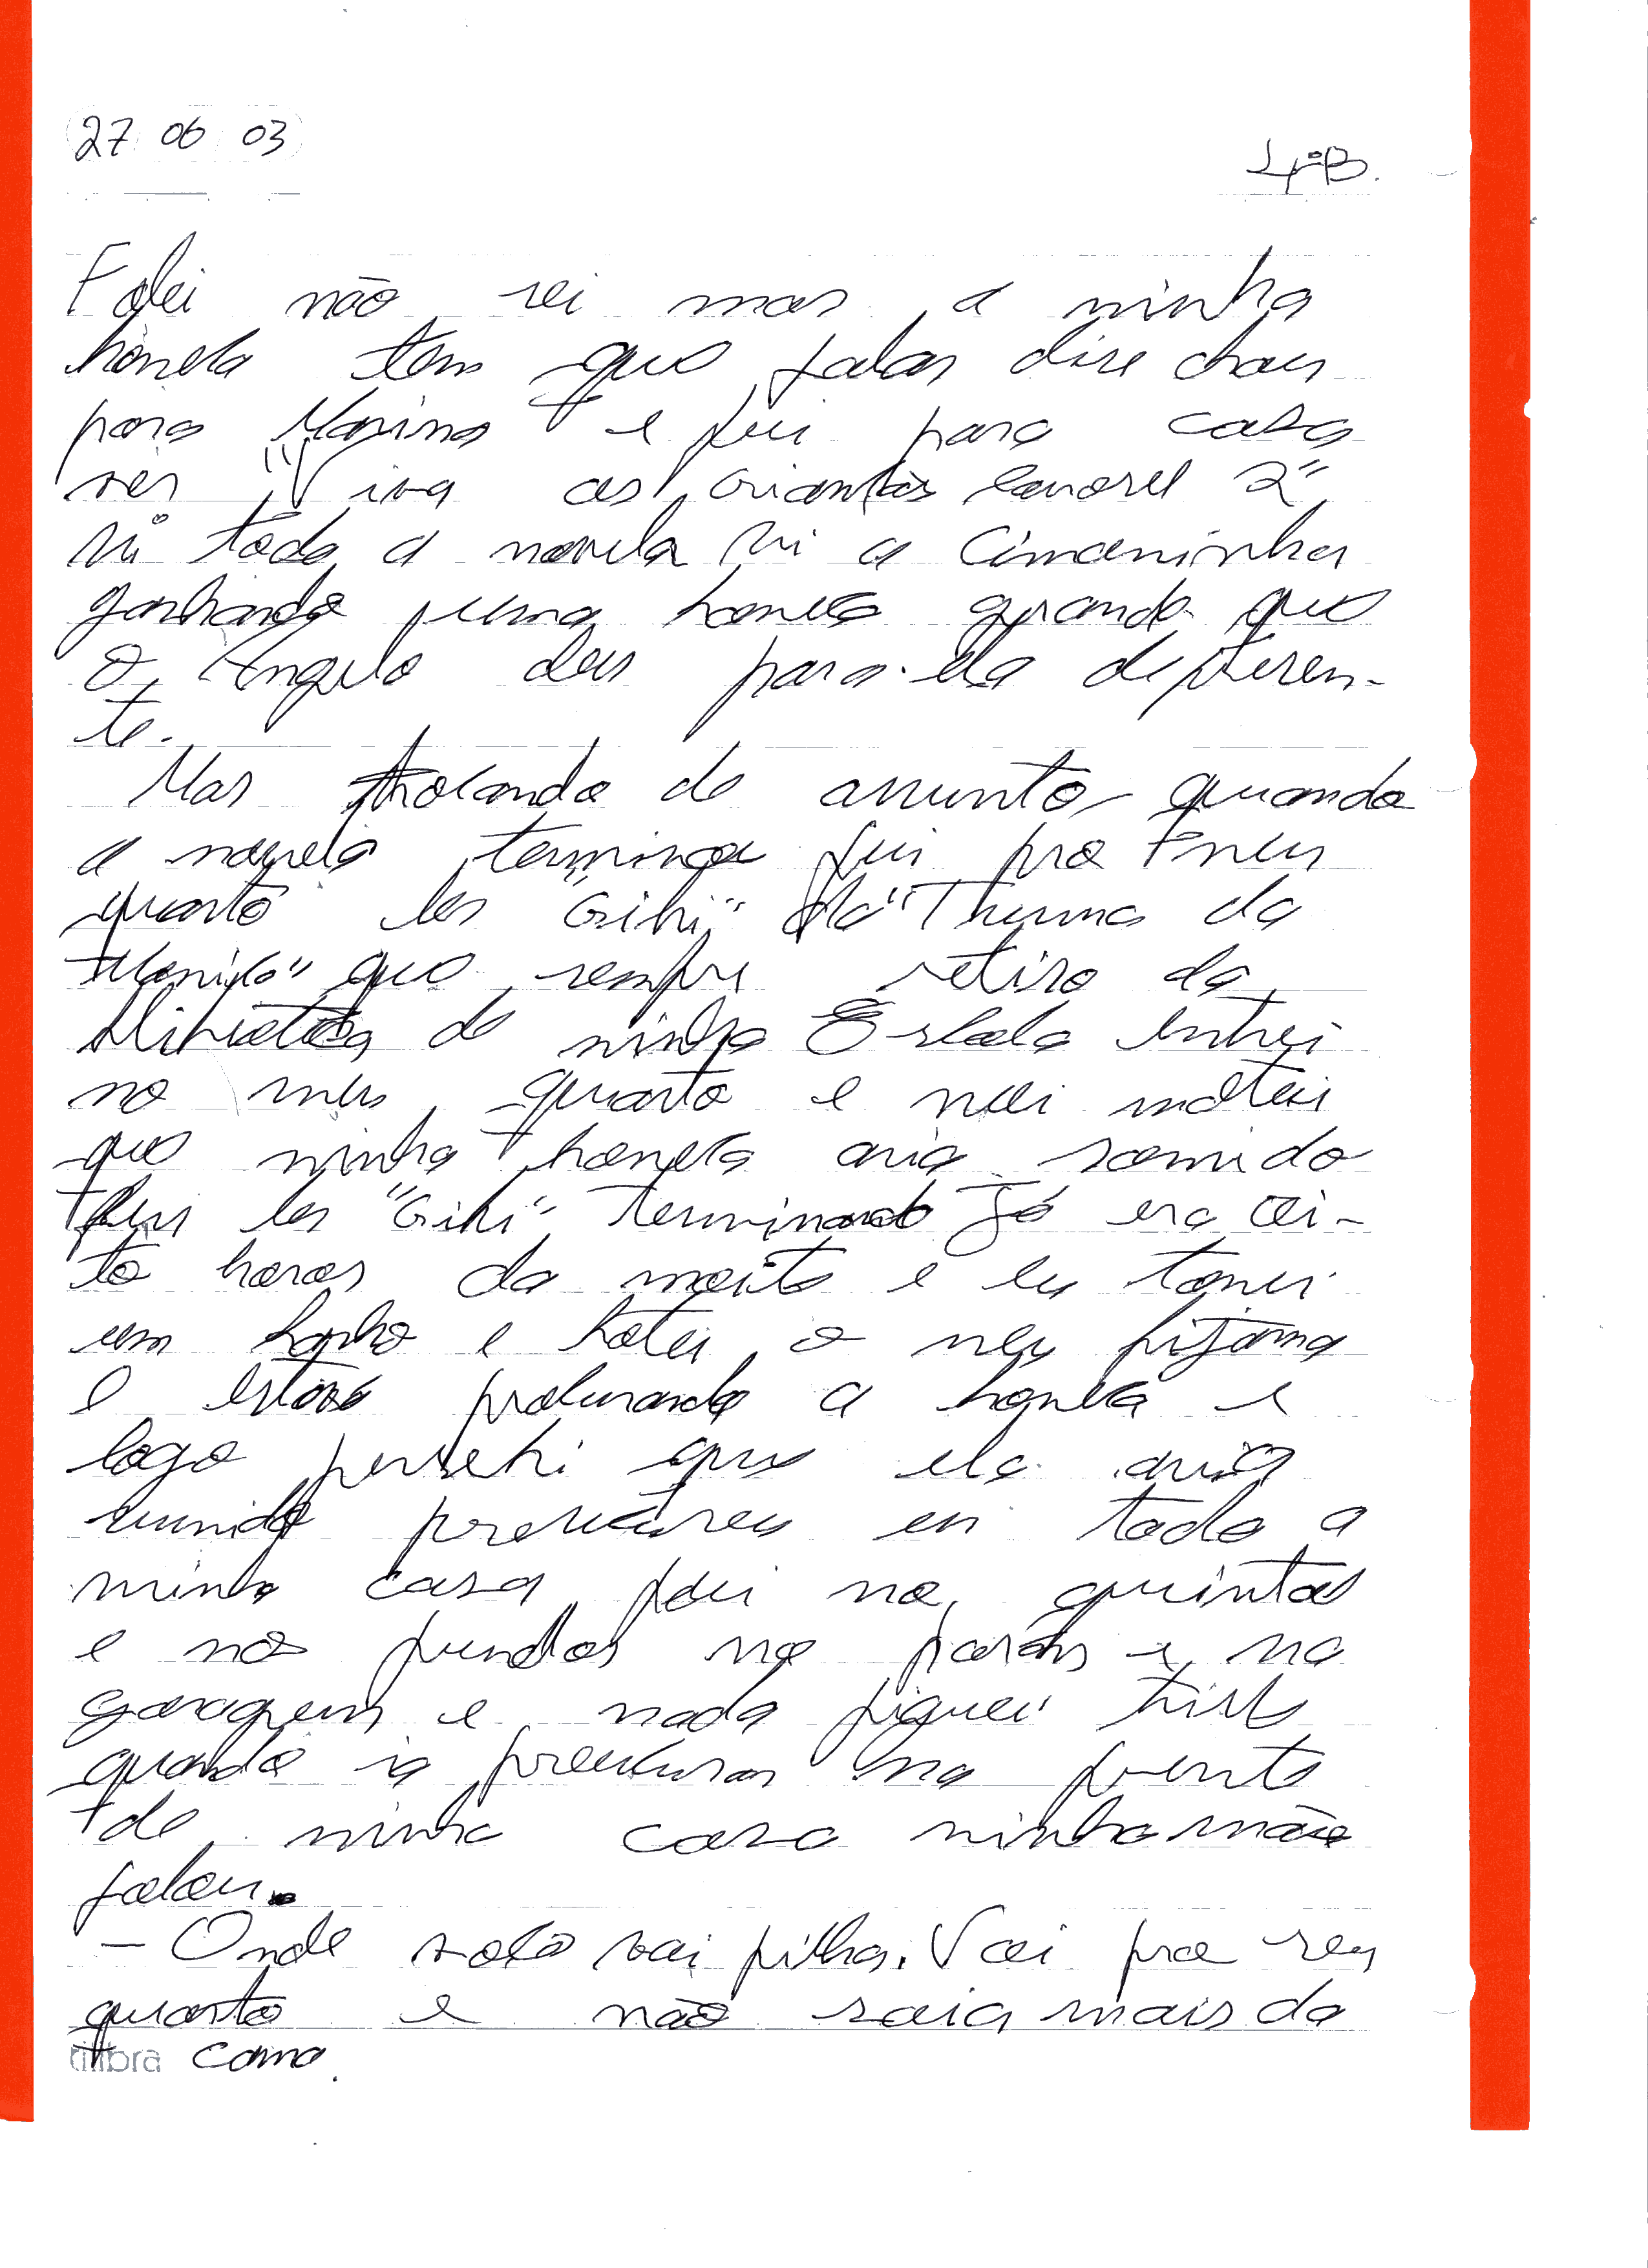 27 06 03
4ªB.
Falei não sei mas a minha
boneca tem que falar dise chau
para Marina e fui para casa
ver "Viva as crianças carrosel 2"
vi toda a novela vi a Cimoninha
ganhando uma boneca grande que
O Ângelo deu para ela diferen-
te.
Mas trocando de assunto quando
a novela terminou fui pro meu
quarto ler "Gibi" da "Thurma da
Monica" que sempre retiro da
biblioteca de minha Escola entrei
no meu quarto e nei notei
que minha boneca avia somido
fui ler "Gibi" terminando Já era oi-
to horas da noite e eu tomei
um banho e botei o meu pijama
e estava procurando a boneca e
logo persebi que ela avia
sumido procurei em toda a
minha casa foi no quintal
e no fundos no porão e na
garagem e nada fiquei triste
quando ia procurar na frente
de minha casa minha mãe
falou.
– Onde você vai filha. Vai pro seu
quarto e não saia mais da
tilibra cama.